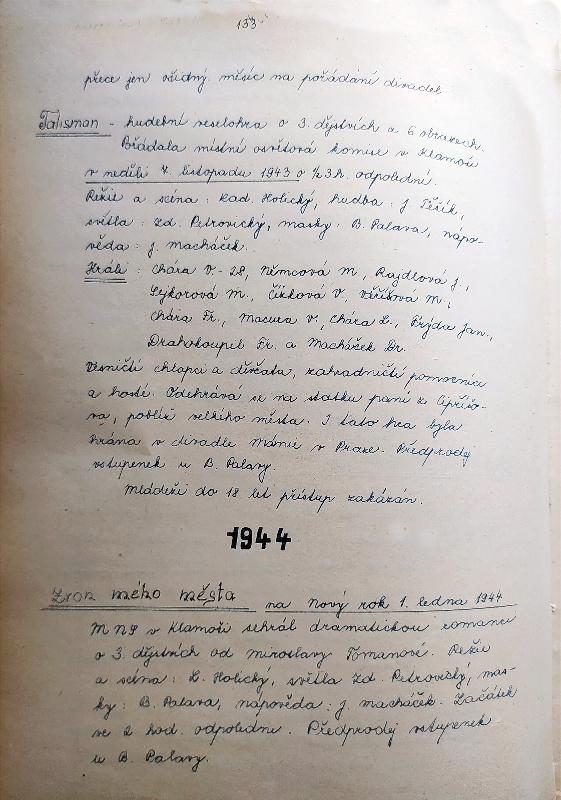 133
přece jen vřídný měsíc na pořádání divadel.
Talisman - hudební veselohra o 3. dějstvích a 6 obrazech.
Pořádala místní osvětová komise v Klamoši
v neděli 7. listopadu 1943 o ½3 h. odpolední.
Režie a scéna: Rad. Holický, hudba: J. Těřík,
světla: Zd. Petrovický, masky: B. Palava, nápo-
věda: J. Macháček.
Hráli: Chára V. - 28, Němcová M., Rajdlová J.,
Sýkorová M., Čížková V., Věříšova M.,
Chára Fr., Macura V., Chára L., Frýda Jan.,
Drahokoupil Fr. a Macháček Dr.
Vesničtí chlapci a děvčata, zahradničtí pomocníci
a hosté. Odehrává se na statku paní ze
va, poblíž velkého města. I tato hra byla
hrána v divadle Mamie v Praze. Předprodej
vstupenek u B. Palavy.
Mládeži do 18 let přístup zakázán.
1944
Zvon mého města na Nový rok 1. ledna 1944
M N P v Klamoši sehrál dramatickou romanci
o 3. dějstvích od Miroslavy Tomanové. Režie
a scéna: L. Holický, světla Zd. Petrovický, mas-
ky: B. Palava, nápověda: J. Macháček. Začátek
ve 2 hod. odpoledne. Předprodej vstupenek
u B. Palavy.